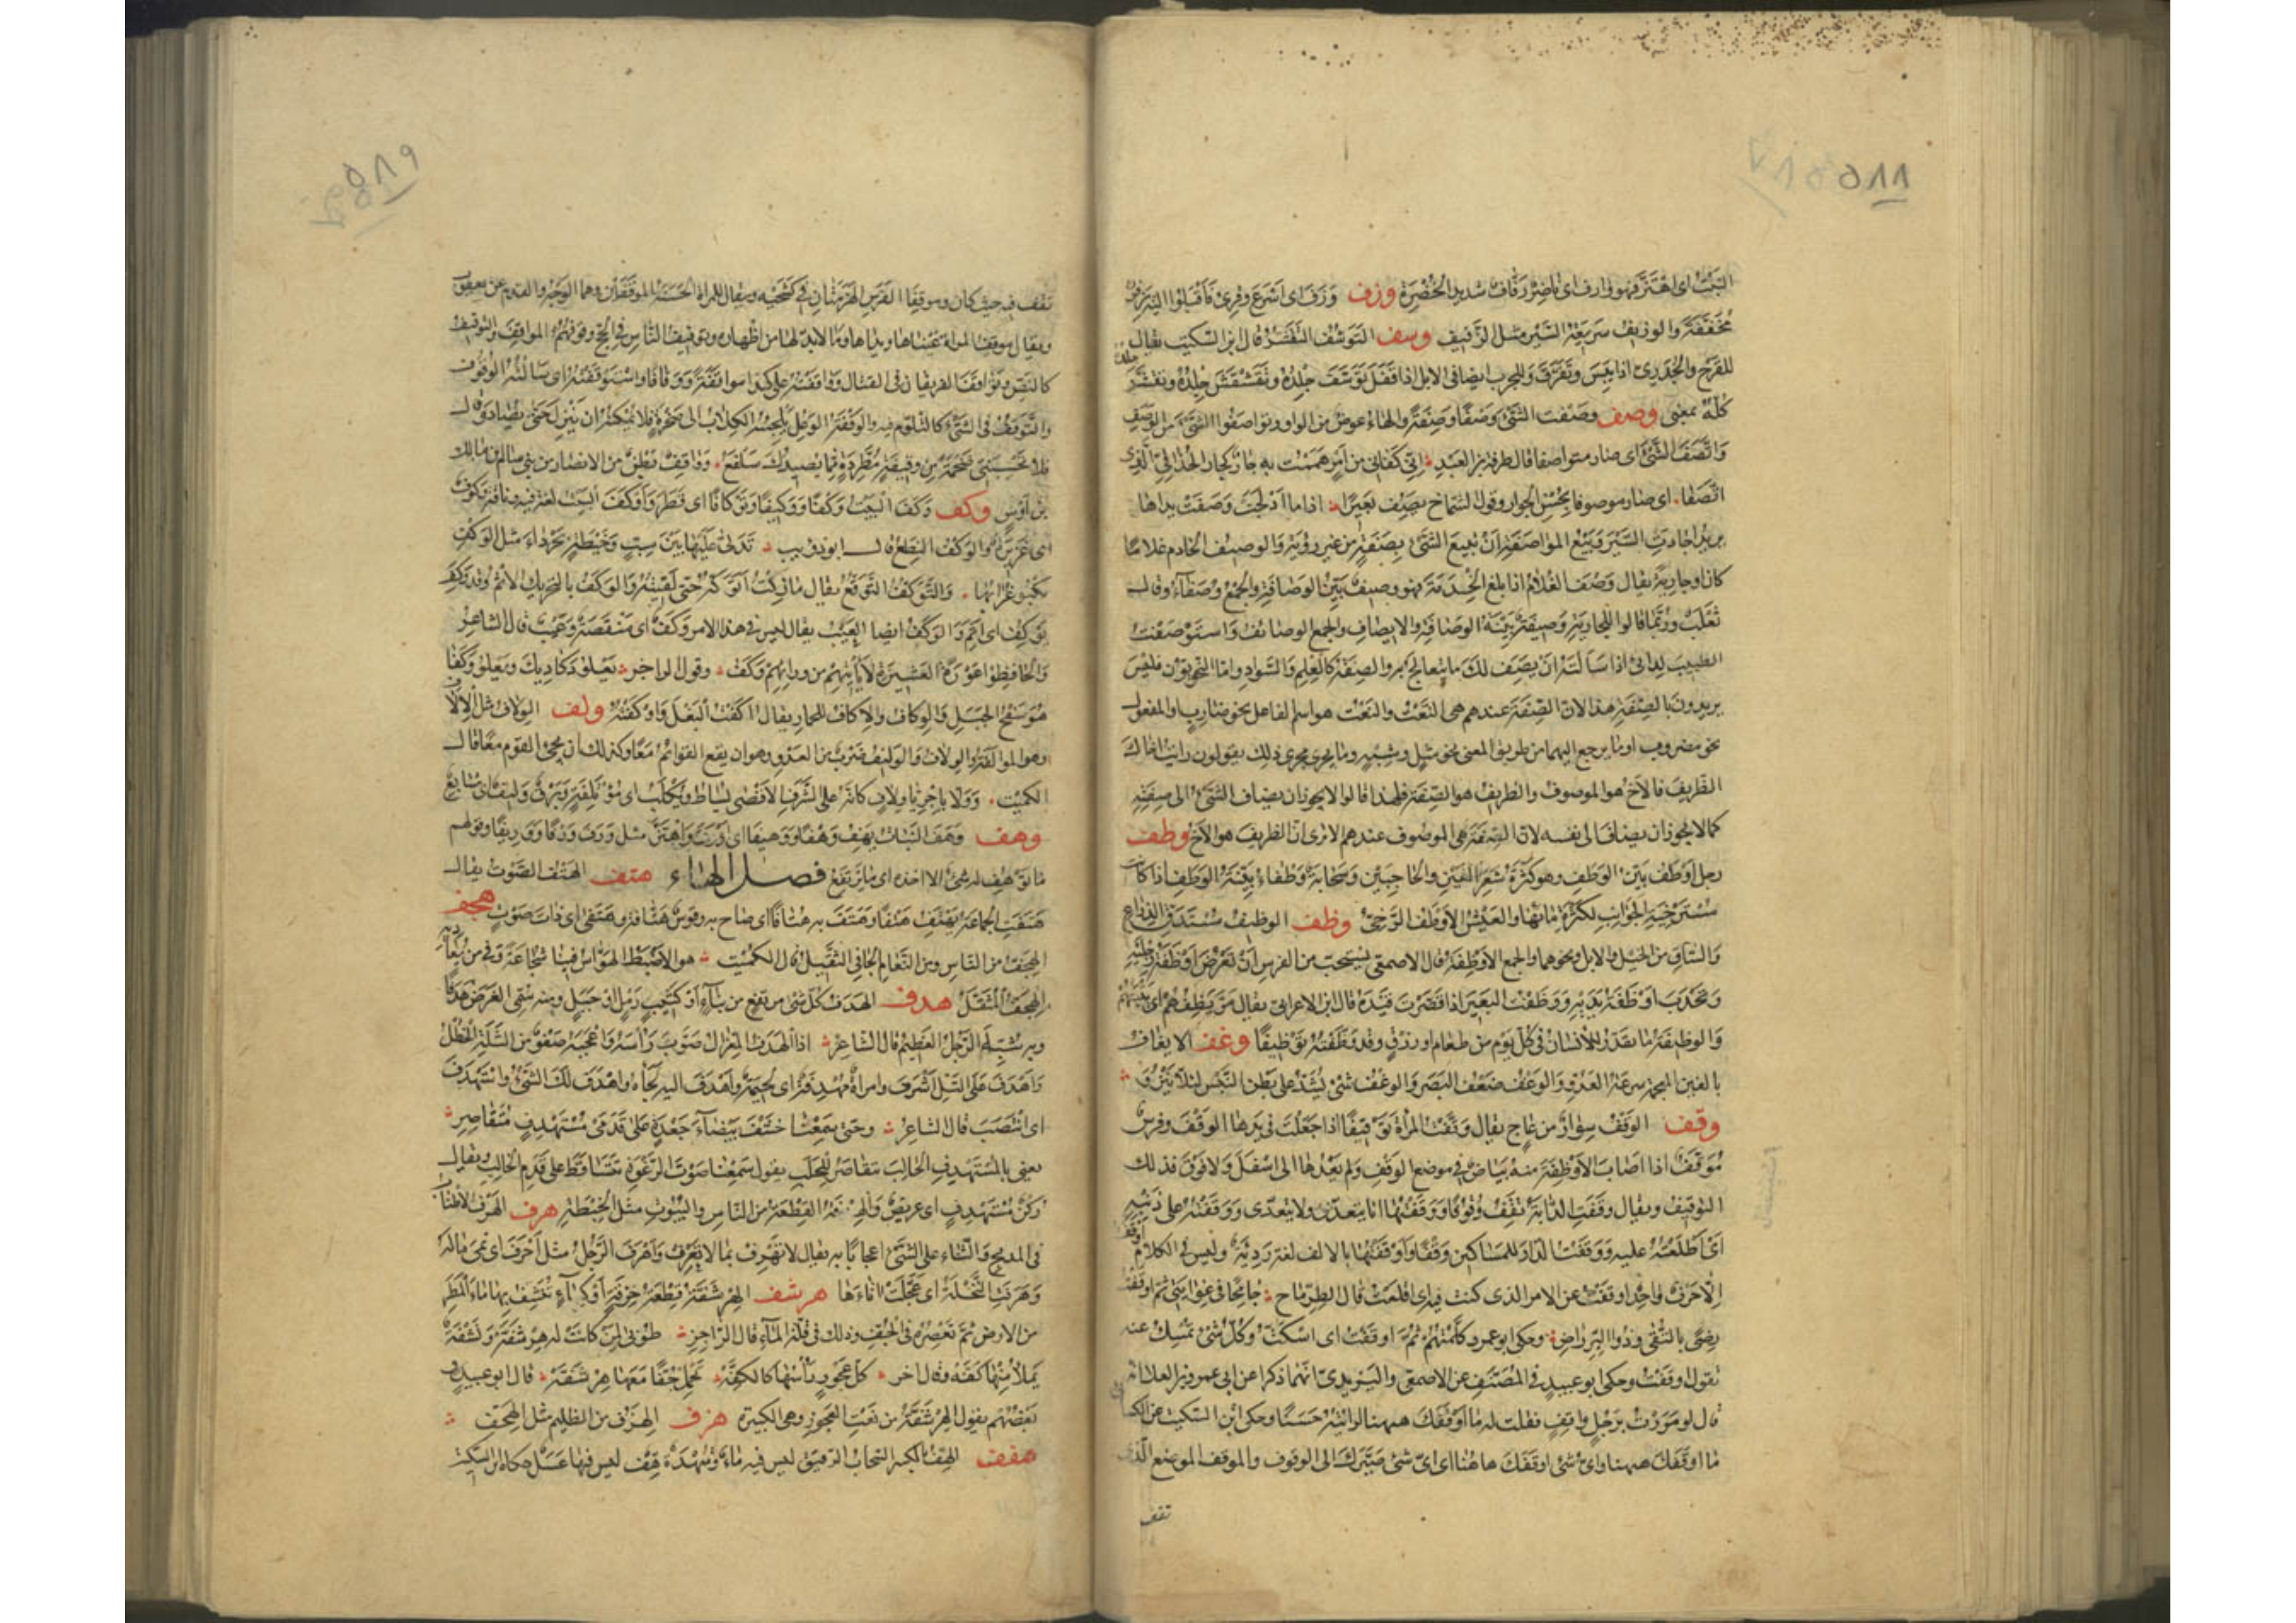 ٥٨٨
النبت اى اهتز فهو وارف اى ناضر رفاف شديد الخضرة وزف وزف اى اسرع وقرئ فاقبلوا اليه يزفون
مخففة والوزيف سرعة السير مثل الزفيف وسف التوسف التقشر قال ابن السكيت يقال
للقرح والجدرى اذا يبس وتقرف وللجرب ايضا فى الابل اذا قفل توسف جلده وتقشقش جلده وتقشر جلده
كله بمعنى وصف وصفت الشئ وصفا وصفة والهاء عوض من الواو وتواصفوا الشئ من الوصف
واتصف الشئ اى صار متواصفا قال طرفة بن العبد انى كفانى من امر هممت به جار كجار الحذاقى الذى
اتصفا اى صار موصوفا بحسن الجوار وقول الشماخ يصف بعيرا اذا ما ادلجت وصفت يداها
يريد اجادت السير وبيع المواصفة ان تبيع الشئ بصفة من غير رؤية والوصيف الخادم غلاما
كان او جارية يقال وصف الغلام اذا بلغ الخدمة فهو وصيف بين الوصافة والجمع وصفاء وقال
ثعلب وربما قالوا للجارية وصيفة بينة الوصافة والايصاف والجمع الوصائف واستوصفت
الطبيب لدائى اذا سالته ان يصف لك ما تتعالج به والصفة كالعلم والسواد واما النحويون فليس
يريدون بالصفة هذا لان الصفة عندهم هى النعت والنعت هو اسم الفاعل نحو ضارب والمفعول
نحو مضروب او ما يرجع اليهما من طريق المعنى نحو مثل وشبه وما يجرى مجرى ذلك يقولون رايت اخاك
الظريف فالاخ هو الموصوف والظريف هو الصفة فلهذا قالوا لا يجوز ان يضاف الشئ الى صفته
كما لا يجوز ان يضاف الى نفسه لان الصفة هى الموصوف عندهم الا ترى ان الظريف هو الاخ وطف
رجل اوطف بين الوطف وهو كثرة شعر العينين والحاجبين وسحابة وطفاء بينة الوطف اذا كانت
مسترخية الجوانب لكثرة مائها والعيش الاوطف الرخى وظف الوظيف مستدق الذراع
والساق من الخيل والابل ونحوهما والجمع الاوظفة قال الاصمعى يستحب من الفرس ان تعرض اوظفة رجليه
وتحدب اوظفة يديه ووظفت البعير اذا قصرت قيده قال ابن الاعرابى يقال مر يظفهم اى يتبعهم
والوظيفة ما يقدر للانسان فى كل يوم من طعام او رزق وقد وظفته توظيفا وغف الايغاف
بالغين المعجمة سرعة العدو والوغف ضعف البصر والوغف شئ يشد على بطن التيس لئلا ينزو
وقف الوقف سوار من عاج يقال وقفت المراة توقيفا اذا جعلت فى يدها الوقف وفرس
موقف اذا اصاب الاوظفة منه بياض فى موضع الوقف ولم يعدها الى اسفل ولا فوق فذلك
التوقيف ويقال وقفت الدابة تقف وقوفا ووقفتها انا يتعدى ولا يتعدى ووقفته على ذنبه
اى اطلعته عليه ووقفت الدار للمساكين وقفا واوقفتها بالالف لغة رديئة وليس فى الكلام اوقفت
الا حرف واحد اوقفت عن الامر الذى كنت فيه اى اقلعت قال الطرماح جامحا فى غوايتى ثم اوقفت
رضى بالتقى وذو البر راض وحكى ابو عمرو كلمتهم ثم اوقفت اى اسكت وكل شئ تمسك عنه
تقول اوقفت وحكى ابو عبيد فى المصنف عن الاصمعى واليزيدى انهما ذكرا عن ابى عمرو بن العلا انه
قال لو مررت برجل واقف فقلت له ما اوقفك ههنا لرايته حسنا وحكى ابن السكيت عن الكسائى
ما اوقفك ههنا واى شئ اوقفك هاهنا اى اى شئ صيرك الى الوقوف والموقف الموضع الذى
تقف
٥٨٩
تقف فيه حيث كان وموقفا الفرس الهزمتان فى كشحيه ويقال للمراة لحسنة الموقفين وهما الوجه والقدم عن يعقوب
ويقال موقف المراة عيناها ويداها وما لا بد لها من اظهاره وتوقيف الناس فى الحج وقوفهم بالمواقف والتوقيف
كالنص وتواقف الفريقان فى القتال وواقفته على كذا مواقفة ووقافا واستوقفته اى سالته الوقوف
والتوقف فى الشئ كالتلوم فيه والوقيفة الوعل تلجئه الكلاب الى صخرة فلا يمكنه ان ينزل حتى يصاد وقال
فلا تحسبنى شحمة من وقيفة مطردة مما تصيدك سلفع وواقف بطن من الانصار من بنى سالم بن مالك
بن اوس وكف وكف البيت وكفا ووكيفا وتوكافا اى قطر واوكف البيت لغة فيه وناقة وكوف
اى غزيرة والوكف النطع قال ابو ذويب تدلى عليها بين سب وخيطة بجرداء مثل الوكف
يكبو غرابها والتوكف التوقع يقال ما زلت اتوكفه حتى لقيته والوكف بالتحريك الاثم وقد وكف
يوكف اى اثم والوكف ايضا العيب يقال ليس فى هذا الامر وكف اى منقصة وعيب قال الشاعر
والحافظو عورة العشيرة لا ياتيهم من ورائهم وكف وقول الاخر يعلو دكاديك ويعلو وكفا
هو سفح الجبل والوكاف والاكاف للحمار يقال اكفت البغل واوكفته ولف الولاف مثل الالاف
وهو الموالفة والولاف والوليف ضرب من العدو وهو ان يقع القوائم معا وكذلك ان يجئ القوم معا قال
الكميت وولا باجريا ولاف كانه على الشرف الاقصى يساط ويكلب اى مؤتلفة وبرق وليف اى متتابع
وهف وهف النبات يهف وهفا ووهيفا اى اورق واهتز مثل ورف ورفا ووريفا وقولهم
ما توهف له شئ الا اخذه اى ما يرتفع فصل الهاء هتف الهتف الصوت يقال
هتفت الحمامة تهتف هتفا وهتف به هتافا اى صاح به وقوس هتافة وهتفى اى ذات صوت هجف
الهجف من الناس ومن النعام الجافى الثقيل قال الكميت هو الاضبط الهواس فينا شجاعة وفى من يعاديه
الهجف المثقل هدف الهدف كل شئ مرتفع من بناء او كثيب رمل او جبل ومنه سمى الغرض هدفا
وبه شبه الرجل العظيم قال الشاعر اذا الهدف المعزال صوب راسه واعجبه ضفو من الثلة الخطل
واهدف على التل اشرف وامراة مهدفة اى لحيمة واهدف اليه لجا واهدف لك الشئ واستهدف
اى انتصب قال الشاعر وحتى سمعنا خشف بيضاء جعدة على قدمى مستهدف متقاصر
يعنى بالمستهدف الحالب يتقاصر للحلب يقول سمعنا صوت الرغوة تتساقط على قدم الحالب ويقال
ركن مستهدف اى عريض والهدفة القطعة من الناس والبيوت مثل الخبطة هرف الهرف الاطناب
فى المدح والثناء على الشئ اعجابا به يقال لا تهرف بما لا تعرف واهرف الرجل مثل احرف اى نمى ماله
وهرفت النخلة اى عجلت اتاءها هرشف الهرشفة قطعة خرقة او كساء تنشف بها ماء المطر
من الارض ثم تعصره فى الجف وذلك فى قلة الماء قال الراجز طوبى لمن كانت له هرشفه ونشفه
يملا منها كفه وقال اخر كل عجوز راسها كالكفه تحمل جفا معها هرشفه قال ابو عبيد
بعضهم يقول الهرشفة من نعت العجوز وهى الكبيرة هزف الهزف من الظليم مثل الهجف
هفف الهف بالكسر السحاب الرقيق ليس فيه ماء وشهدة هف ليس فيها عسل حكاه ابن السكيت